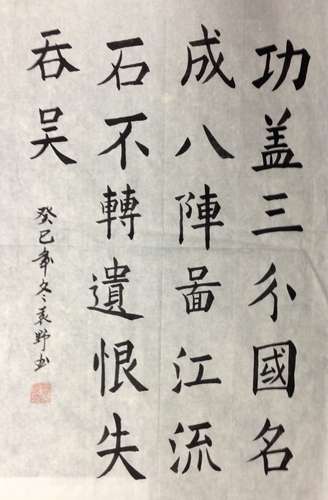 功盖三分國名
成八陣啚江流
石不轉遺恨失
吞吴
癸巳年冬袁野书